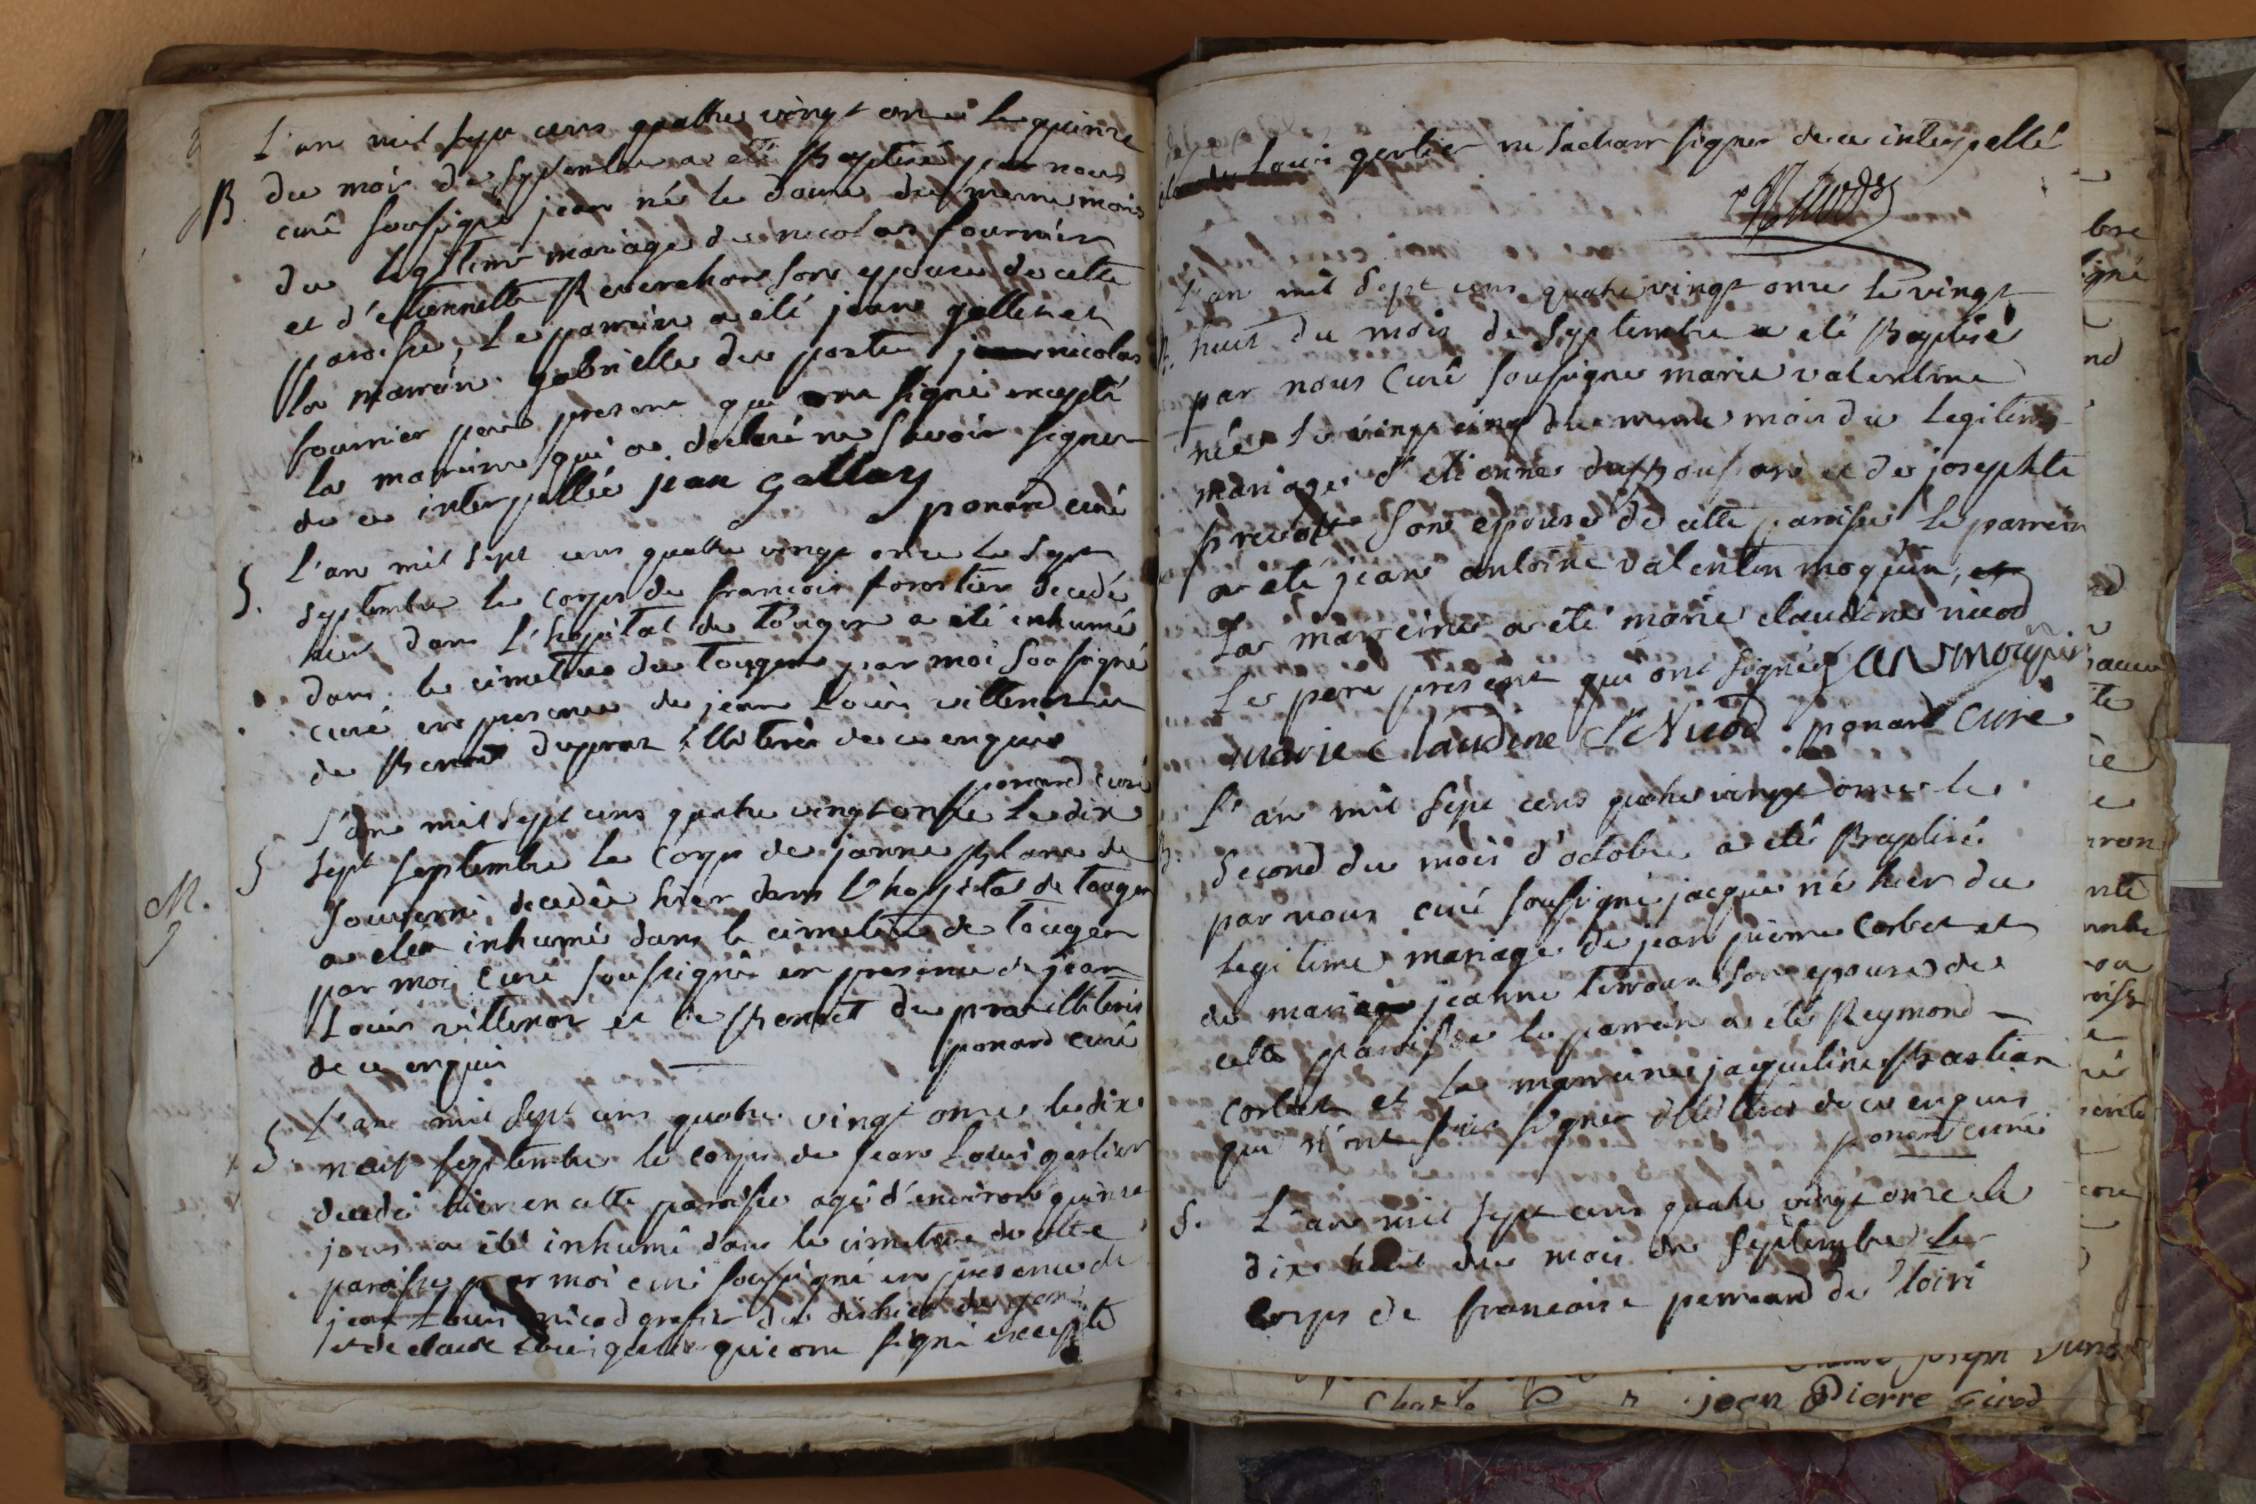 L'an mil sept cens quattre vingt onze le quinze
B. du mois de septembre a eté Baptisé par nous
curé sousigné jean né le douze du meme mois
du legitime mariage de nicolas fournier
et d'etiennette Reverchon son epouse de cette
paroisse, Le parrein a été jean gallet et
la marrein gabrielle du porte nicolas
fournier pere present qui ont signé excepté
la marreine qui a declaré ne savoir signer
de ce interpellée jean Gallay
ponard curé
S. L'an mil sept cens quattre vingt onze Le sept
septembre le corps de francois forestier decedé
hier dans l'hopital de tougin a été inhumé
dans le cimetiere de tougin par moi sousigné
curé en presence de jean Louis villenoz et
de Benoit dupraz illiterés de ce enquis
ponard curé
L'an mil sept cens quatre vingt onze Le dix
S sept septembre le corps de janne Blanc de
Souverni decedée hier dans l'hopital de tougin
a eté inhumé dans le cimetiere de tougin
par moi curé soussigné en presence de jean
Louis villenoz et de Benoit du praz illiterés
de ce enquis
ponard curé
M.
S. L'an mil sept cens quatre vingt onze le dix
neuf septembre le corps de jean Louis gerlier
decedé hier en cette paroisse agé d'environ quinze
jours a été inhumé dans le cimetiere de cette
paroisse par moi curé soussigné en presence de
jean Louis nicod grefier du district de gex
et de claude Louis gerlier qui ont signé excepté
Louis gerlier ne sachant signer de ce interpellé
Nicod
L'an mil sept cens quatre vingt onze le vingt
huit du mois de septembre a eté Baptisée
par nous Curé sousigné marie valentine
née le vingt cinq du meme mois du legitime
mariage d'etienne et de josephte
prevost son epouse de cette paroisse le parrein
a été jean antoine valentin moquin, et
La marreine a été marie claudine nicod
Le pere present qui ont signé
Marie Claudine Nicod ponard Curé
B. L'an mil sept cens quatre vingt onze le
second du mois d'octobre a eté Baptisé
par nous curé sousigné jacque né hier du
legitime mariage de jean pierre Corbet et
de marie jeanne terroux son epouse de
cette paroisse le parrein a été Reymond
corbet et la marreine jaqueline Bastian
qui n'ont su signer illiterés de ce enquis
ponard curé
S. L'an mil sept cens quatre vingt onze le
dix huit du mois de septembre Le
corps de francoise perreard de Loiré
joseph
jean Pierre Girod